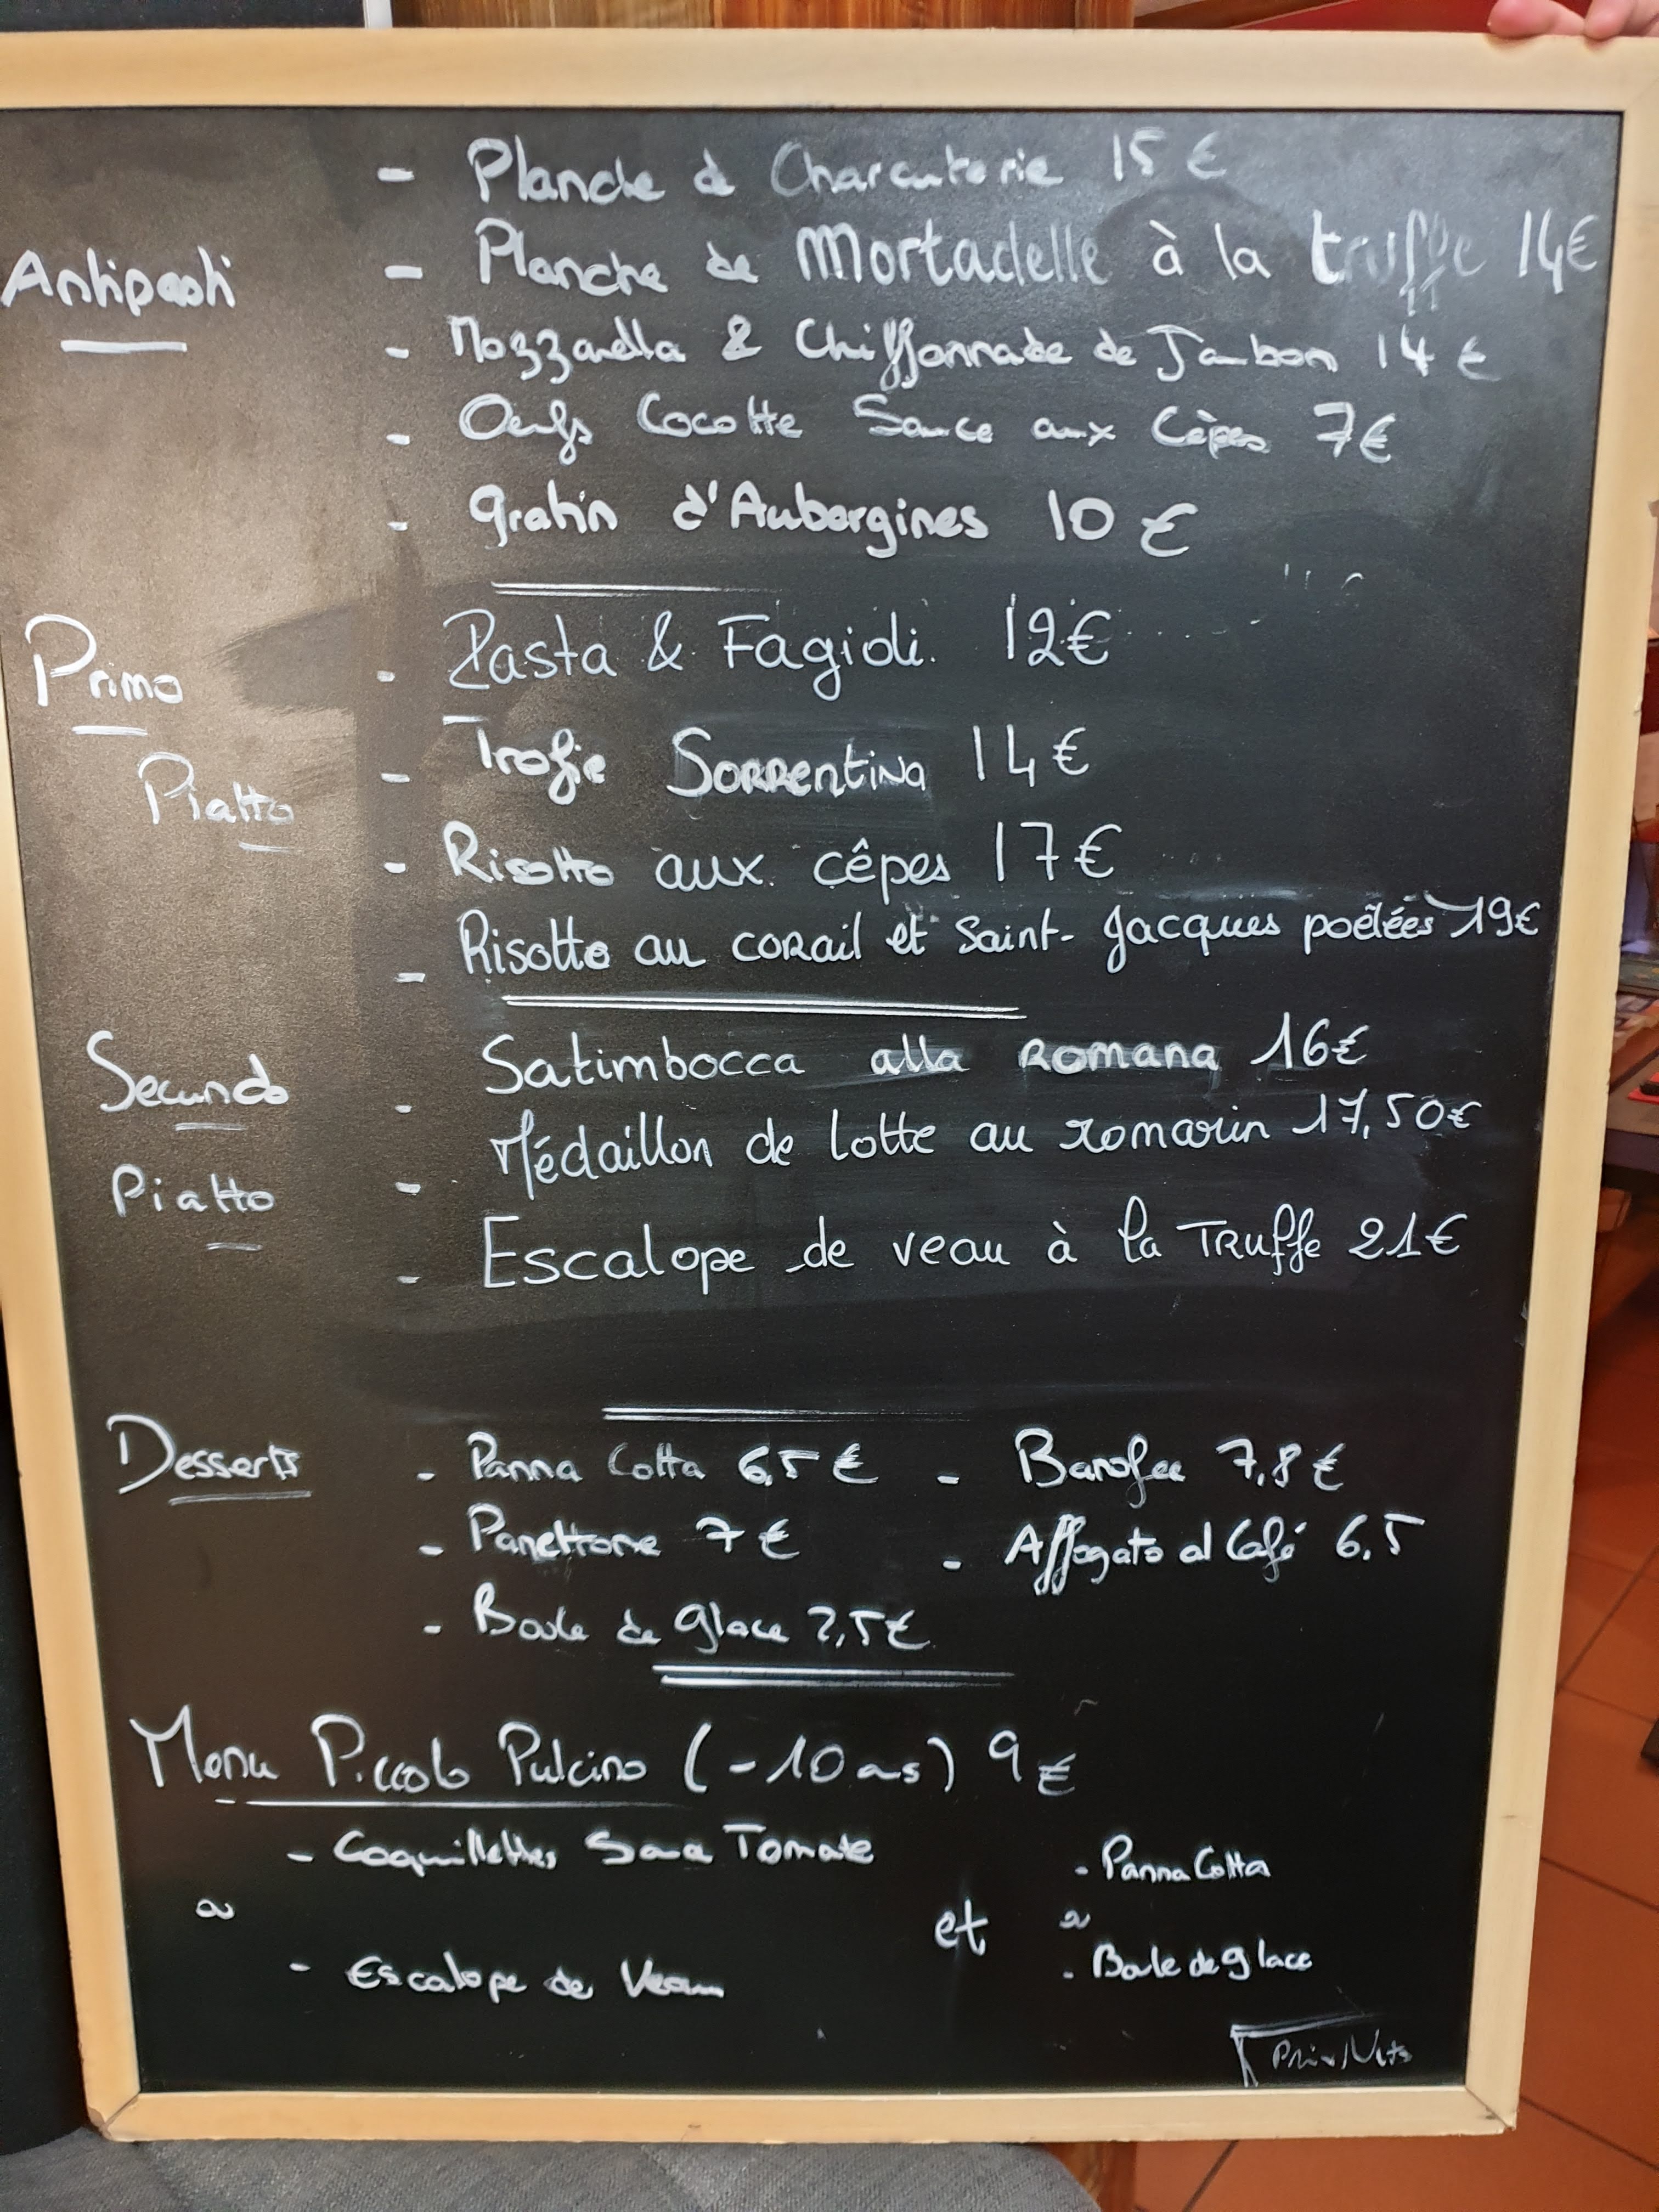 Antipasti
- Planche de Charcuterie 15 €
- Planche de Mortadelle à la truffe 14€
- Mozzarella & Chiffonnade de Jambon 14 €
- Oeufs Cocotte Sauce aux Cèpes 7€
- Gratin d'Aubergines 10 €
Primo
Piatto
- Pasta & Fagioli 12€
- Trofie Sorrentina 14€
- Risotto aux cêpes 17€
- Risotto au corail et Saint-Jacques poêlées 19€
Secundo
Piatto
- Satimbocca alla Romana 16€
- Médaillon de lotte au romarin 17,50€
- Escalope de veau à la Truffe 21€
Desserts
- Panna Cotta 6,5 € - Banofee 7,8 €
- Panettone 7 € - Affogato al Café 6,5
- Boule de glace 2,5€
Menu Piccolo Pulcino (-10 ans) 9 €
- Coquillettes Sauce Tomate
ou
- Escalope de Veau
et
- Panna Cotta
ou
- Boule de glace
Prix Nets